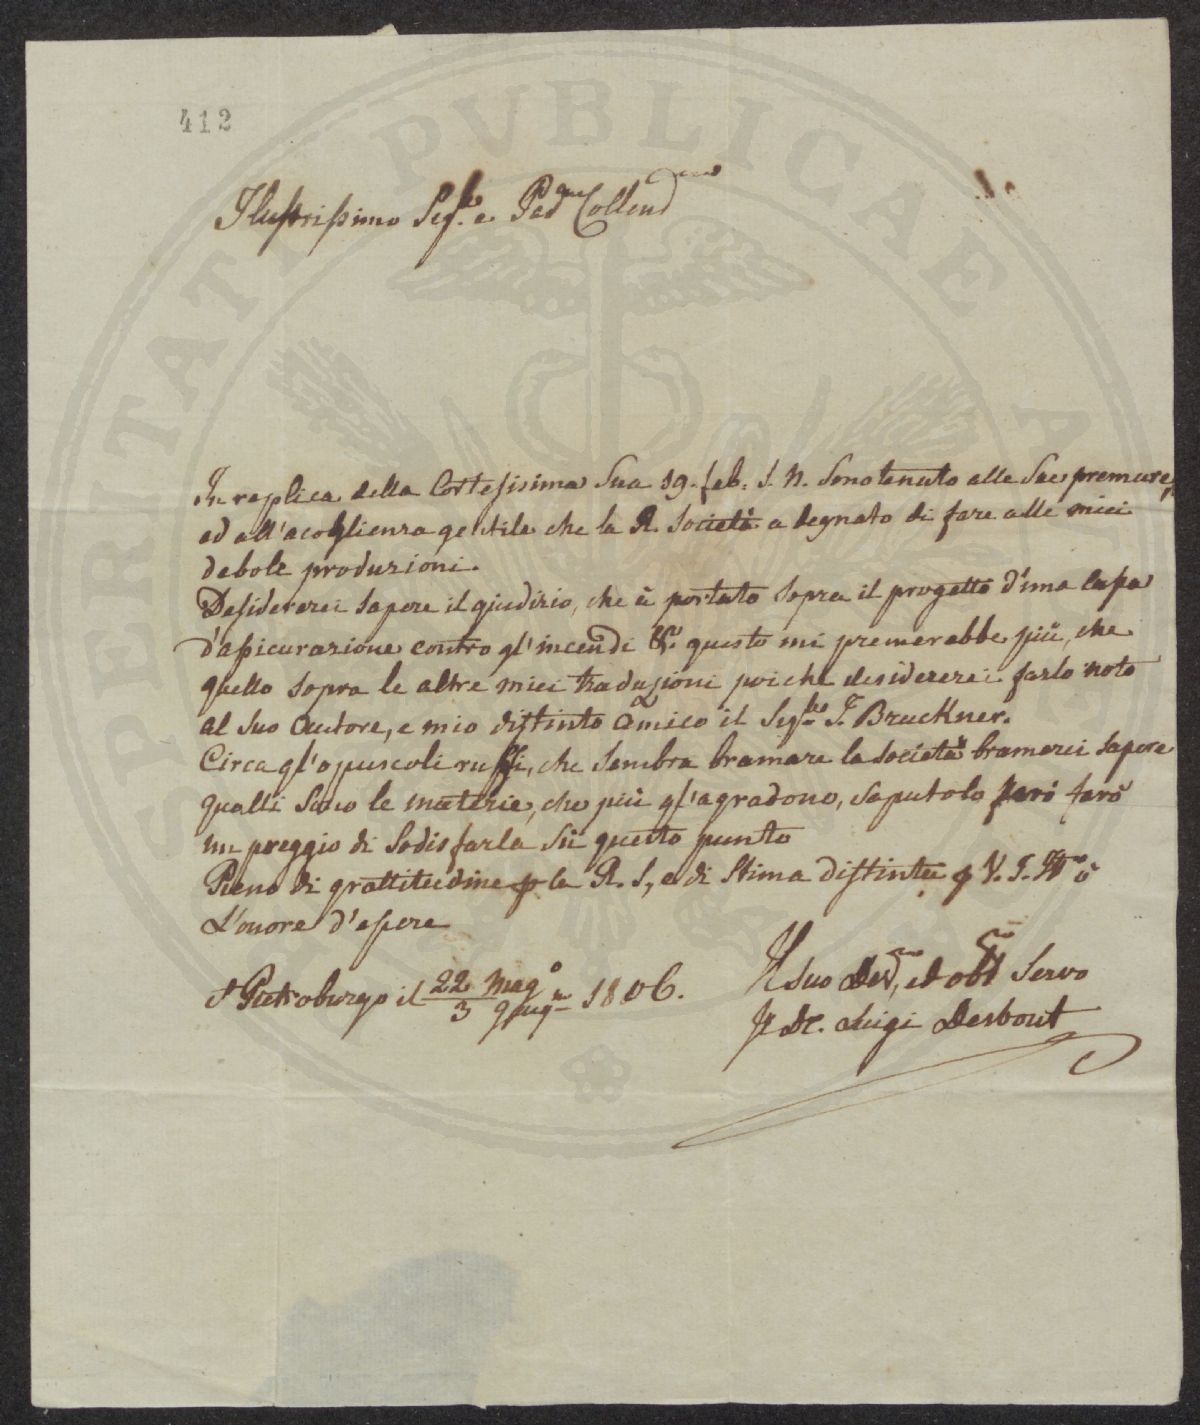 412
Ilustrissimo Sigre e Padne Collendmo
In replica della Cortesisima Sua 19. feb. S. N. Sono tenuto alle Sue premure,
ed all'acoglienza gentile che la R. Società a degnato di fare alle miei
debole produzioni.
Desidererei sapere il giudizio, che à portato sopra il progetto d'una Casa
d'assicurazione contro gl'incendi &c. questo mi premerebbe più, che
quello sopra le altre miei traduzioni poiche desidererei farlo noto
al suo Autore, e mio distinto Amico il Sigre J. Bruckner.
Circa gl'opuscoli russi, che sembra bramare la società bramerei sapere
qualli sono le materie, che più gl'agradono, saputolo farò
un preggio di Sodisfarla sù questo punto
Pieno di grattitudine p la R. S., e di Stima distinta p V. S. Illma ò
L'onore d'essere
St Pietroburgo il 22 Mago / 3 giugno 1806.
Il suo Devmo, ed obbmo Servo
Il Dr. Luigi Desbout
PROSPERITATI PVBLICAE AVGENDAE